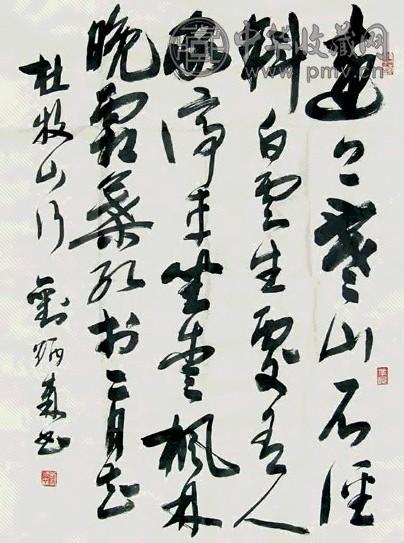 遠上寒山石徑
斜白雲生處有人
家停車坐愛楓林
晚霜葉紅於二月花
杜牧山行 劉炳森書
中华收藏网
www.pmv.cn